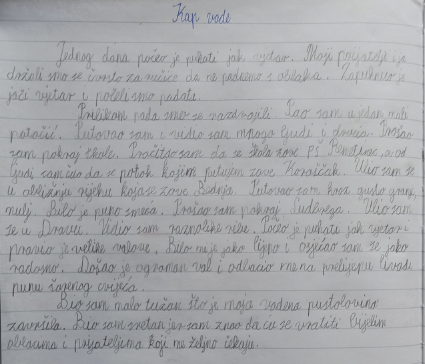 Kap vode
Jednog dana počeo je puhati jak vjetar. Moji prijatelji i ja
držali smo se čvrsto za ručice da ne padnemo s oblaka. Zapuhnuo je
jači vjetar i počeli smo padati.
Prilikom pada smo se razdvojili. Pao sam u jedan mali
potočić. Putovao sam i vidio sam mnogo ljudi i drveća. Prošao
sam pokraj škole. Pročitao sam da se škola zove PŠ a od
ljudi sam čuo da se potok kojim putujem zove Korušćak. Ulio sam se
u obližnju rijeku koja se zove Bednja. Putovao sam kroz gusto granje,
mulj. Bilo je puno smeća. Prošao sam pokraj Ludbrega. Ulio sam
se u Dravu. Vidio sam raznolike ribe. Počeo je puhati jak vjetar i
pravio je velike valove. Bilo mi je jako lijepo i osjećao sam se jako
radosno. Došao je ogroman val i odbacio me na prelijepu livadu
punu šarenog cvijeća.
Bio sam malo tužan što je moja vodena pustolovina
završila. Bio sam sretan jer sam znao da ću se vratiti bijelim
oblacima i prijateljima koji me željno čekaju.